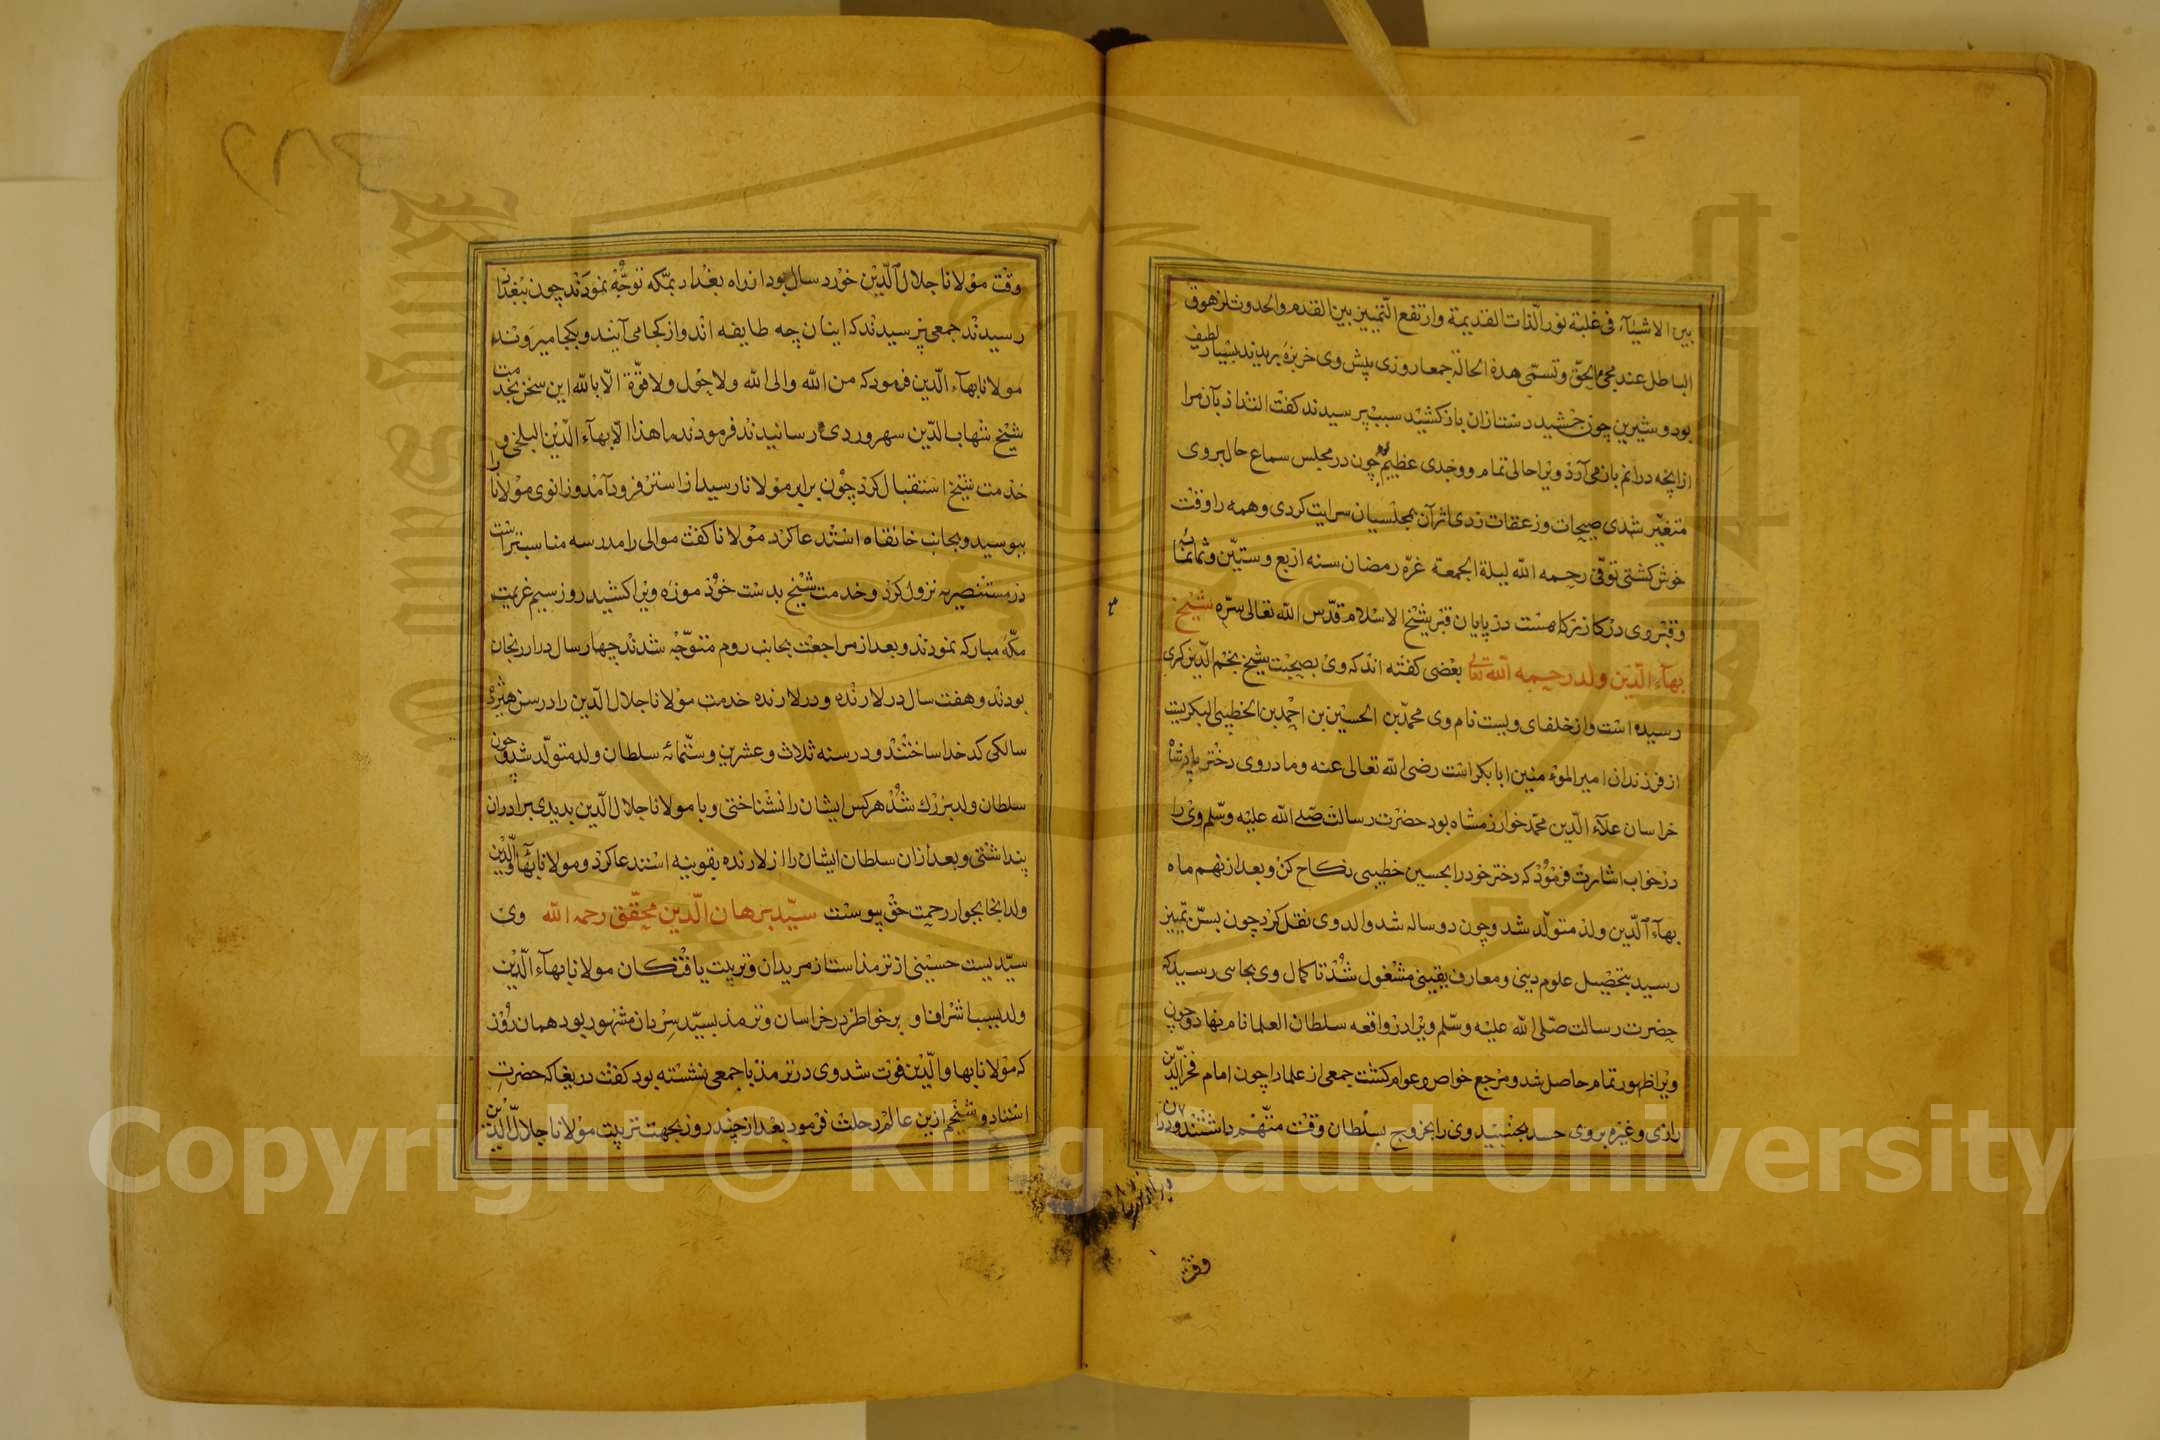 بین الاشیاء فی غلبة نور الذات القدیمة وارتفع التمییز بین القدم والحدوث لزهوق
الباطل عند مجئ الحق وتسمی هذه الحالة جمعا روزی پیش وی خربزه بریدند بسیار لطیف
بود و شیرین چون چشید دست ازان باز کشید سبب پرسیدند کفت التذاذ بآن مرا
ازانچه درانم باز می آرد ویرا حالی تمام و وجدی عظیم چون در مجلس سماع حال بر وی
متغیر شدی صیحات وزعقات زدی اثر آن بمجلسیان سرایت کردی و همه را وقت
خوش کشتی توفی رحمه الله لیلة الجمعة غره رمضان سنه اربع وستین وثمانمائة
وقبر وی در کازرکاه هست در پایان قبر شیخ الاسلام قدس الله تعالی سره شیخ
بهاء الدین ولد رحمه الله تعالی بعضی کفته اند که وی بصحبت شیخ نجم الدین کبری
رسیده است و از خلفای ویست نام وی محمد بن الحسین بن احمد بن الخطیبی البکریست
از فرزندان امیر المؤمنین ابا بکر است رضی الله تعالی عنه و مادر وی دختر پادشاه
خراسان علاء الدین محمد خوارزمشاه بود حضرت رسالت صلی الله علیه وسلم وی را
در خواب اشارت فرمود که دختر خود را بحسین خطیبی نکاح کن و بعد از نهم ماه
بهاء الدین ولد متولد شد و چون دو ساله شد والد وی نقل کرد چون بسن تمییز
رسید بتحصیل علوم دینی و معارف یقینی مشغول شد تا کمال وی بجایی رسید که
حضرت رسالت صلی الله علیه وسلم ویرا در واقعه سلطان العلما نام نهاد و چون
ویرا ظهور تمام حاصل شد و مرجع خواص و عوام کشت جمعی از علما را چون امام فخر الدین
رازی و غیره بر وی حسد بجنبید وی را بخروج بسلطان وقت متهم داشتند و دران
وقت مولانا جلال الدین خورد سال بود از راه بغداد بمکه توجه نمودند چون ببغداد
رسیدند جمعی پرسیدند که اینان چه طایفه اند و از کجا می آیند و بکجا میروند
مولانا بهاء الدین فرمود که من الله والی الله ولا حول ولا قوة الا بالله این سخن بخدمت
شیخ شهاب الدین سهروردی رسانیدند فرمودند ما هذا الا بهاء الدین البلخی و
خدمت شیخ استقبال کرد چون برابر مولانا رسید از استر فرود آمد و زانوی مولانا را
ببوسید و بجانب خانقاه استدعا کرد مولانا کفت موالی را مدرسه مناسبتر است
در مستنصریه نزول کرد و خدمت شیخ بدست خود موزه ویرا کشید روز سیم عزیمت
مکه مبارکه نمودند و بعد از مراجعت بجانب روم متوجه شدند چهار سال در ارزنجان
بودند و هفت سال در لارنده و در لارنده خدمت مولانا جلال الدین را در سن هژده
سالکی کدخدا ساختند و در سنه ثلاث وعشرین وستمائه سلطان ولد متولد شد و چون
سلطان ولد بزرك شد هر کس ایشان را نشناختی و با مولانا جلال الدین بدیدی برادران
پنداشتی و بعد ازان سلطان ایشان را از لارنده بقونیه استدعا کرد و مولانا بهاء الدین
ولد انجا بجوار رحمت حق پیوست سید برهان الدین محقق رحمه الله وی
سیدیست حسینی از ترمذ است از مریدان و تربیت یافتکان مولانا بهاء الدین
ولد بسبب اشراف او بر خواطر در خراسان و ترمذ بسید سردان مشهور بود همان روز
که مولانا بهاء الدین فوت شد وی در ترمذ با جمعی نشسته بود کفت دریغا که حضرت
استاد و شیخم ازین عالم رحلت فرمود بعد از چند روز بجهت تربیت مولانا جلال الدین
وقت
Copyright © King Saud University